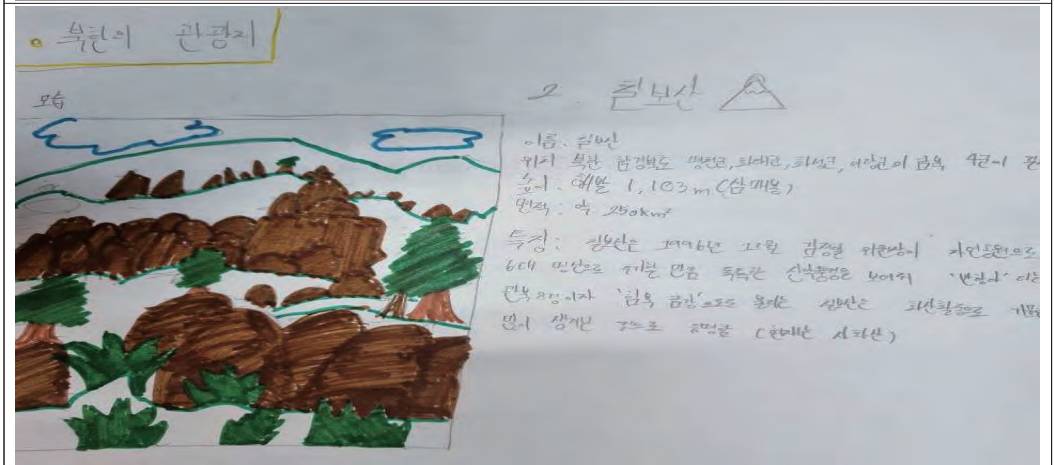 북한의 관광지
모습
2. 칠보산
이름: 칠보산
위치 북한 함경북도 명천군, 화대군, 화성군, 어랑군의 남쪽 4군이
높이: 해발 1,103m (상매봉)
면적: 약 250km²
특징: 칠보산은 1996년 김정일 위원장이 자연공원으로
6대 명산으로 만큼 독특한 산악풍경을 보여줘
관북8경이자 '함북 금강'으로도 불리는 칠보산은 화산활동으로
많이 생겨난 곳으로 유명함 (현재는 사화산)